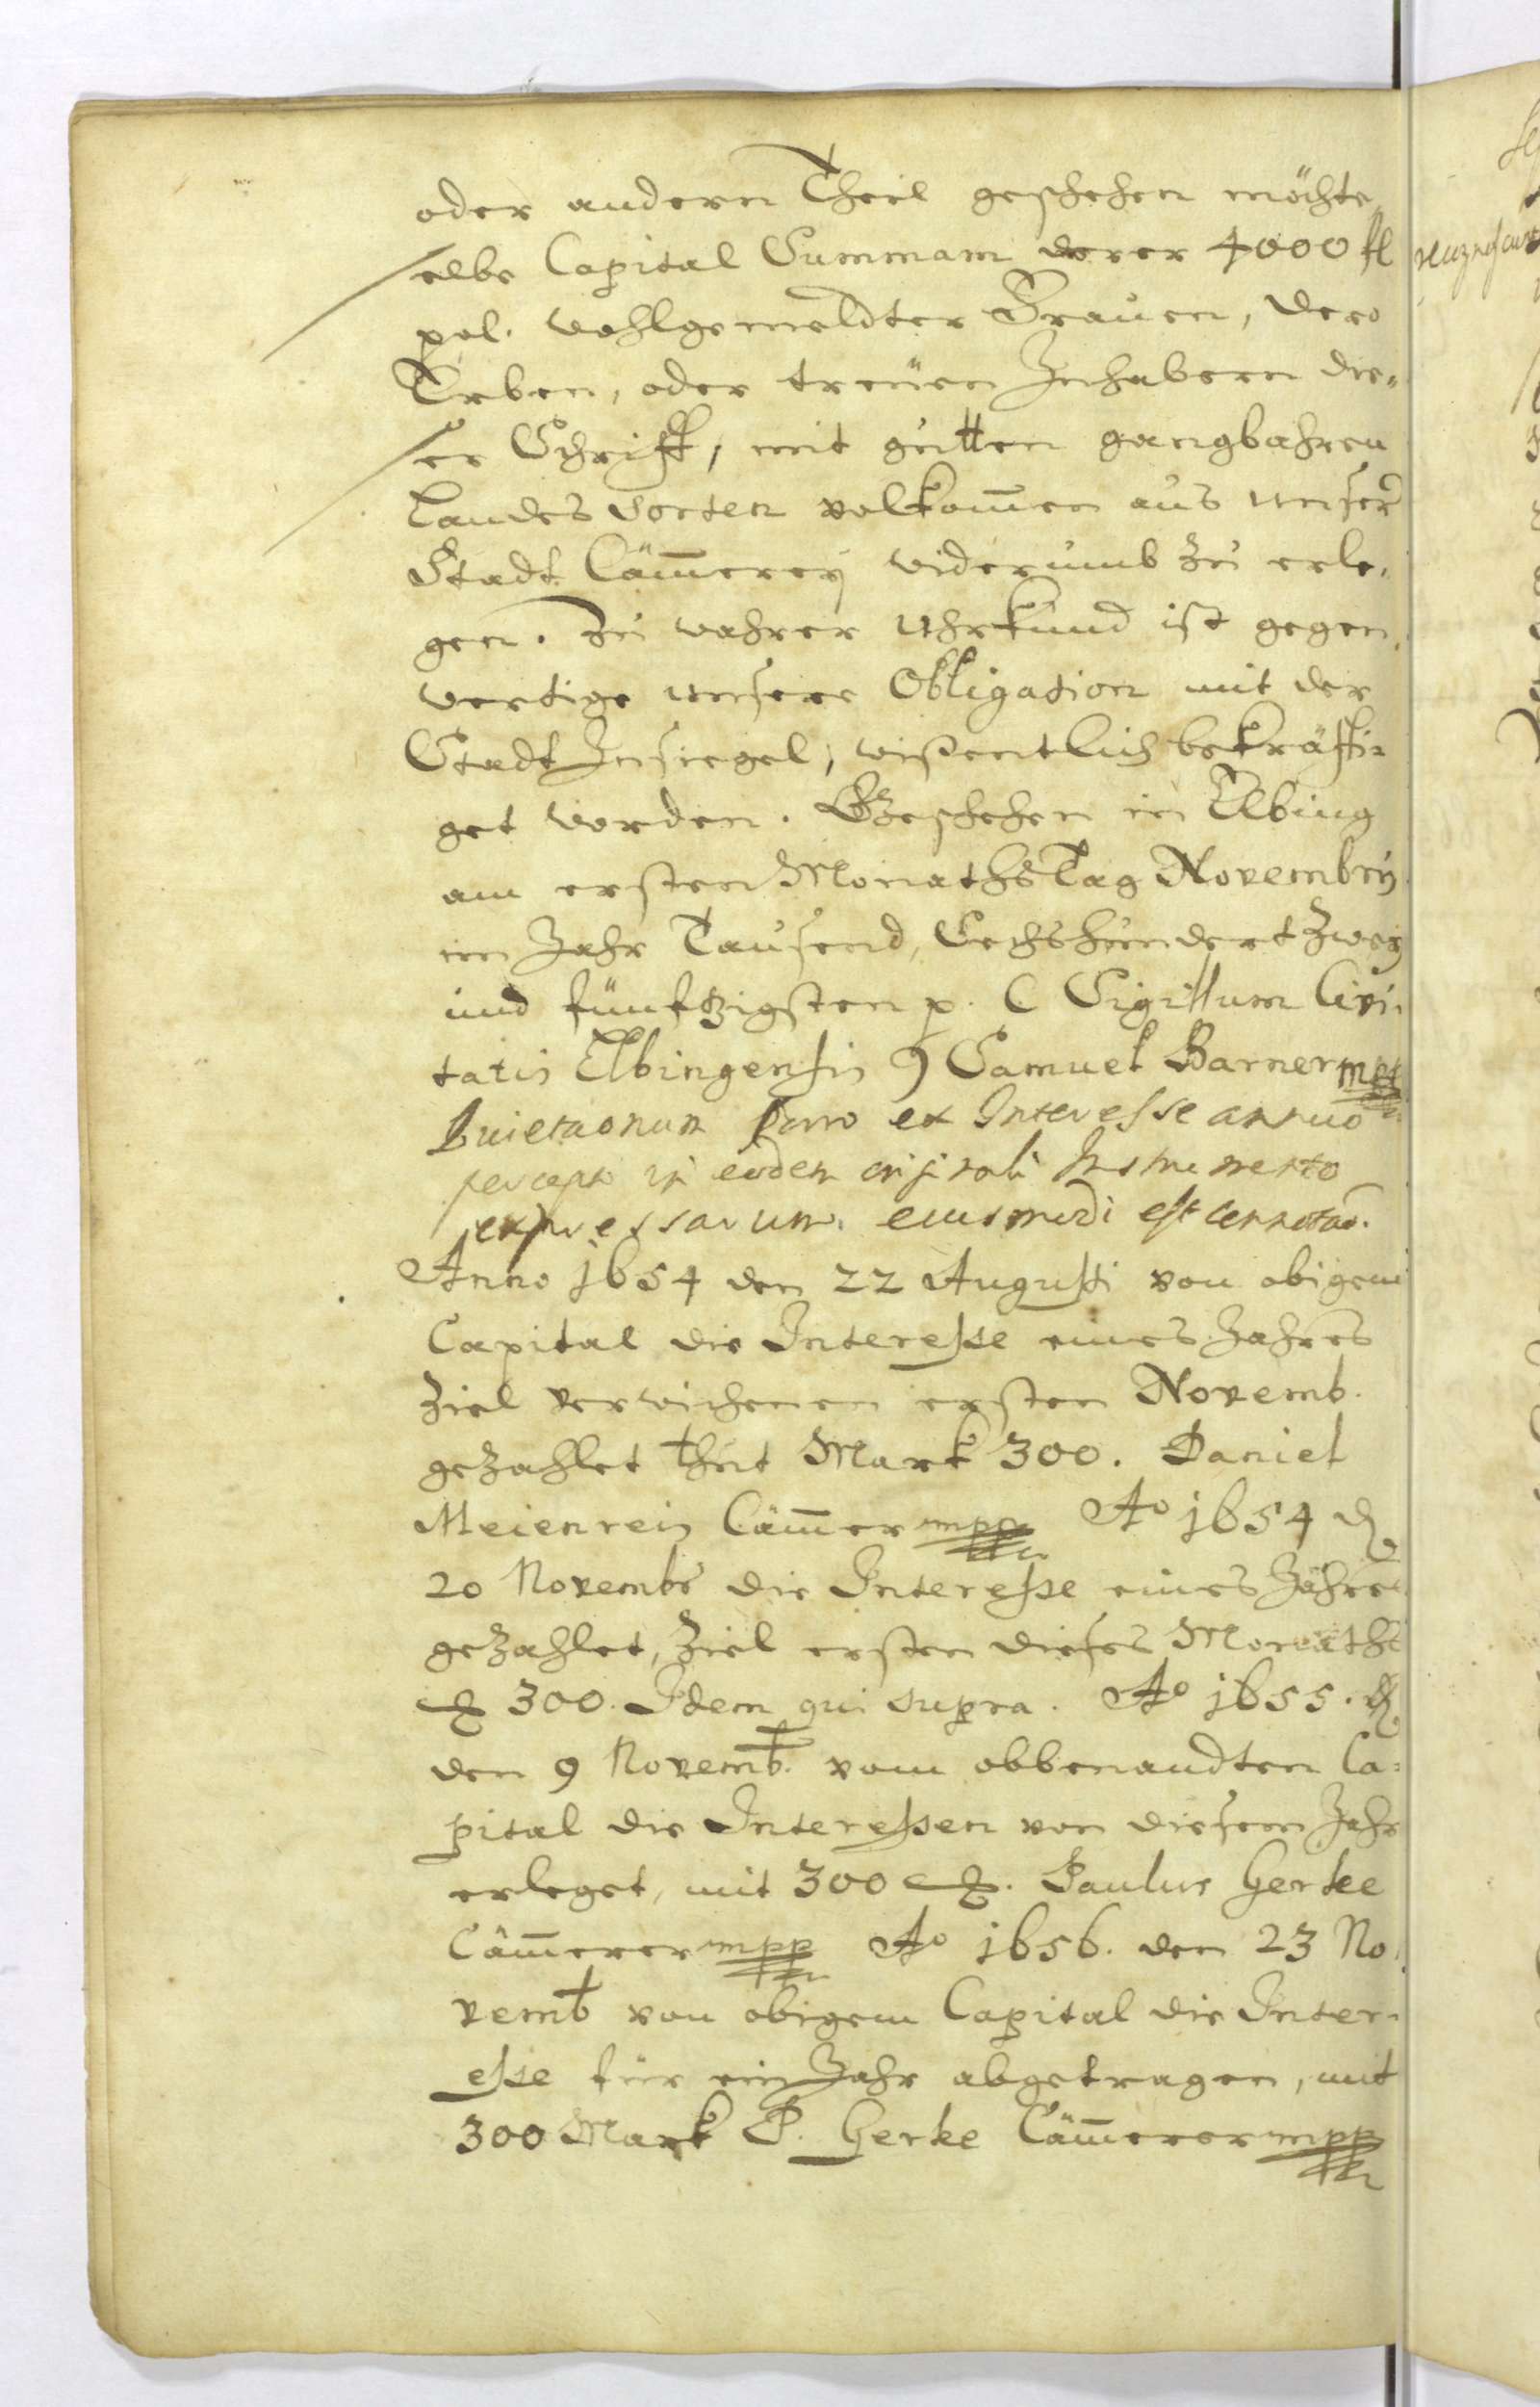 oder andern Theil geschehen möchte
selbe Capital Summam derer 4000 fl
pol. wohlgemeldter Frauen, dero
Erben, oder treuen Inhabern die-
ser Schrifft, mit gutten gangbahren
Landes Sorten volkom̄en aus unser
Stadt Cäm̄erey widerumb zu erle,
gen. Zu wahrer Uhrkund ist gegen,
wertige unsere Obligation mit der
Stadt Insiegel, wißentlich bekräffti-
get worden. Geschehen in Elbing
am ersten Monaths Tag Novembris
im Jahr Tausend, Sechshundert zwey
und fünftzigsten p. ( Sigillum Civi-
tatis Elbingensis ) Samuel Barner mpp
Quietaonum porro ex Interesse annuo
percepto in eodem originali Instrumento
expressarum. eiusmodi est connotao.
Anno 1654 den 22 Augusti von obigem
Capital die Interesse eines Jahres
Ziel verwichenen ersten Novemb.
gezahlet thut Mark 300. Daniel
Meienreis Cäm̄er mpp Ao 1654 d
20 Novembr die Interesse eines Jahres
gezahlet, Ziel ersten dieses Monaths
300. Idem qui supra. Ao 1655.
den 9 Novemb. vom obbenandten Ca-
pital die Interessen von diesem Jahr
erleget, mit 300. Paulus Gerke
Cäm̄erer mpp Ao 1656. den 23 No
vemb von obigem Capital die Inter-
esse für ein Jahr abgetragen, mit
300 Mark P. Gerke Cäm̄erer mpp